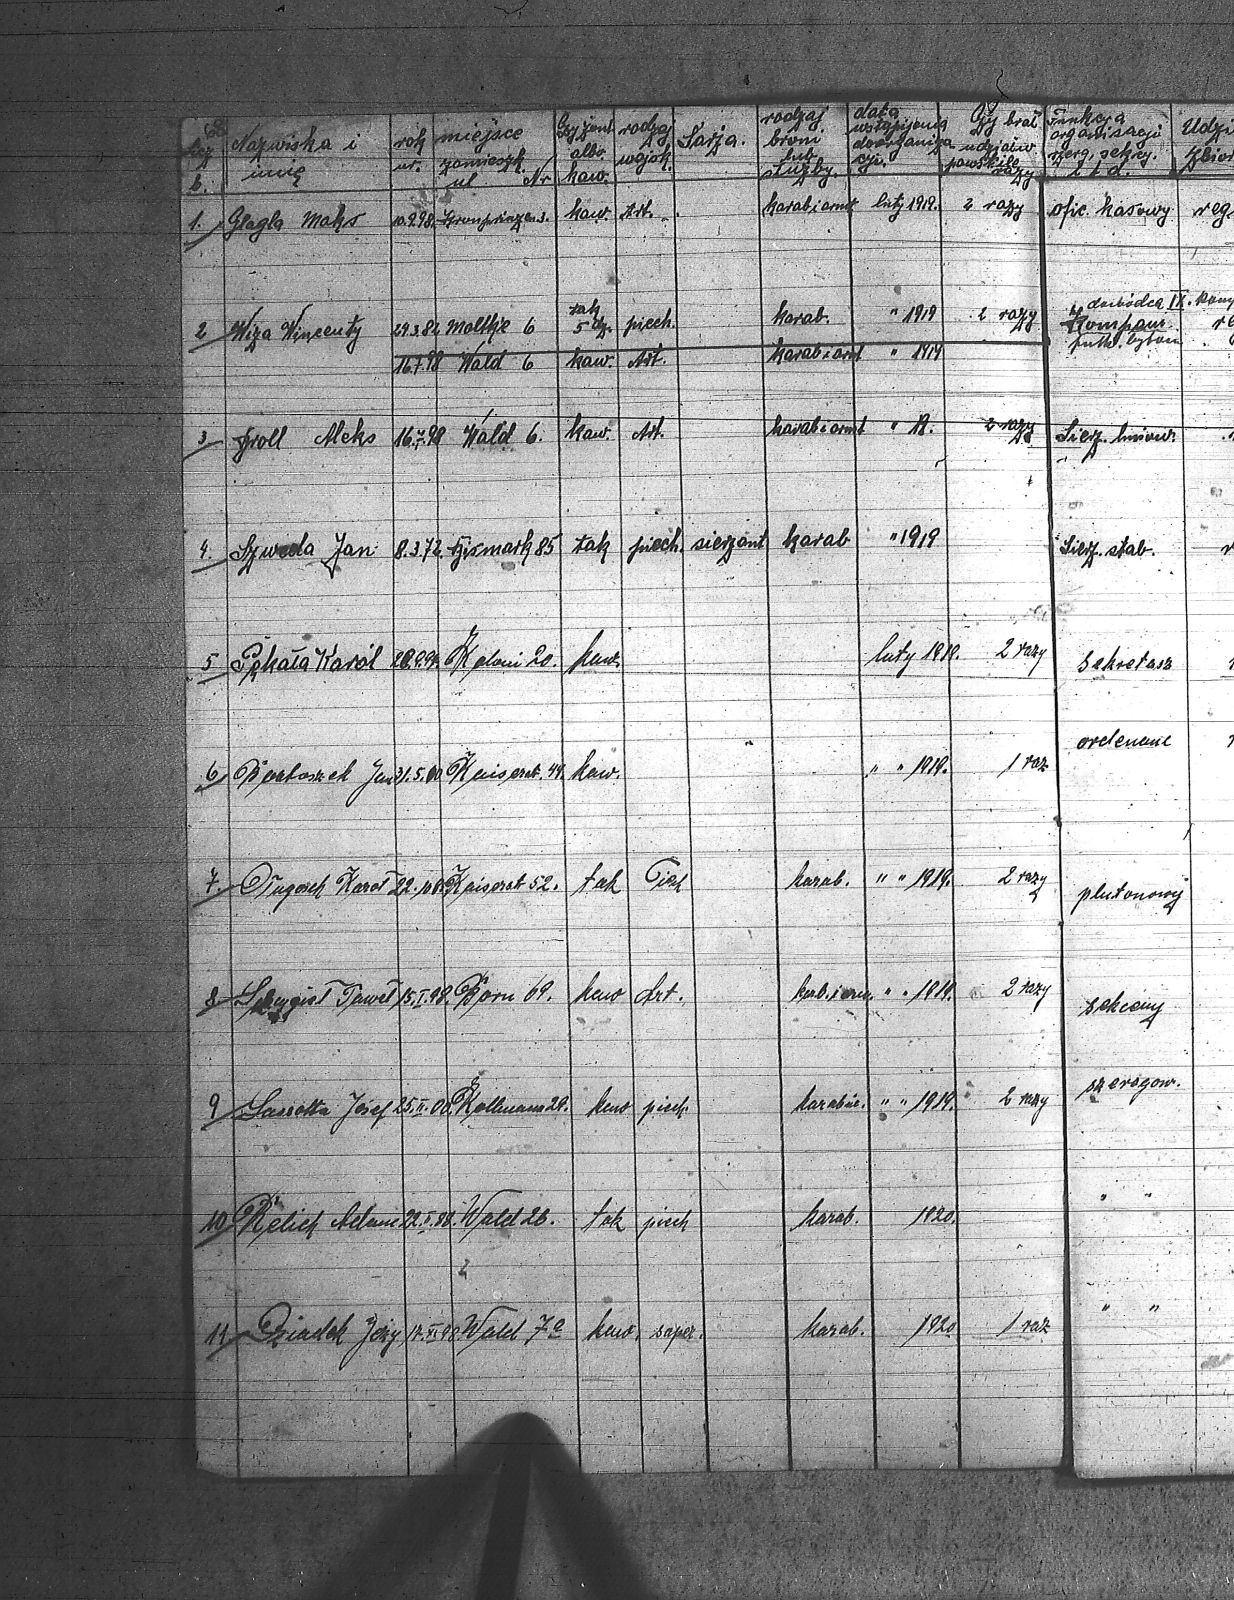 Nazwiska i imię rok ur. miejsce zamieszk. ul. Nr Czy żonat albo kaw. rodzaj wojsk. Sarża. rodzaj broni lub służby. data wstąpienia do organiza cji. Czy brał udział w powstaniu razy Funkcja organisacji szerg. sekrey. i t. d. Udzi
1. Glagla Maks 10.9.98. 3. kaw. Art. karab i armt luty 1919. 2 razy ofic. kasowy
2 Wiza Wincenty 29.3.82 Moltkje 6 tak 5 dz. piech. karab. " 1919 2 razy dowódca IX. komp
16.7.98 Wald 6 kaw. Art. karab i armt " 1919
3 Kroll Aleks 16.7.98 Wald 6. kaw. Art. karab i armt " 19. 2 razy Sierz. liniow.
4. Szweda Jan 8.3.72. Bismark 85 tak piech. sierżant karab " 1919 Sierz. stab.
5 Pękała Karól 9.94. Koloni 20. kaw. luty 1919. 2 razy Sekretasz
6 Bartoszek Jan 31.5.00 Kaiserst. 44. kaw. " " 1919. 1 raz ordenanc
7. Karol 22. Kaiserst 52. tak Piech karab. " " 1919. 2 razy plutonowy
8 Paweł 15.I.98. Born 69. kaw Art. " " 1919. 2 razy sekciony
9 Józef 25.II.00. 29. kaw piech. karabin. " " 1919. 2 razy szeregow.
10 Relich Adam 22.I.88. Wald 26. tak piech karab. 1920. " "
11 Dziadek Jeży 17.XI.98 Wald 7a kaw. saper. karab. 1920 1 raz " "